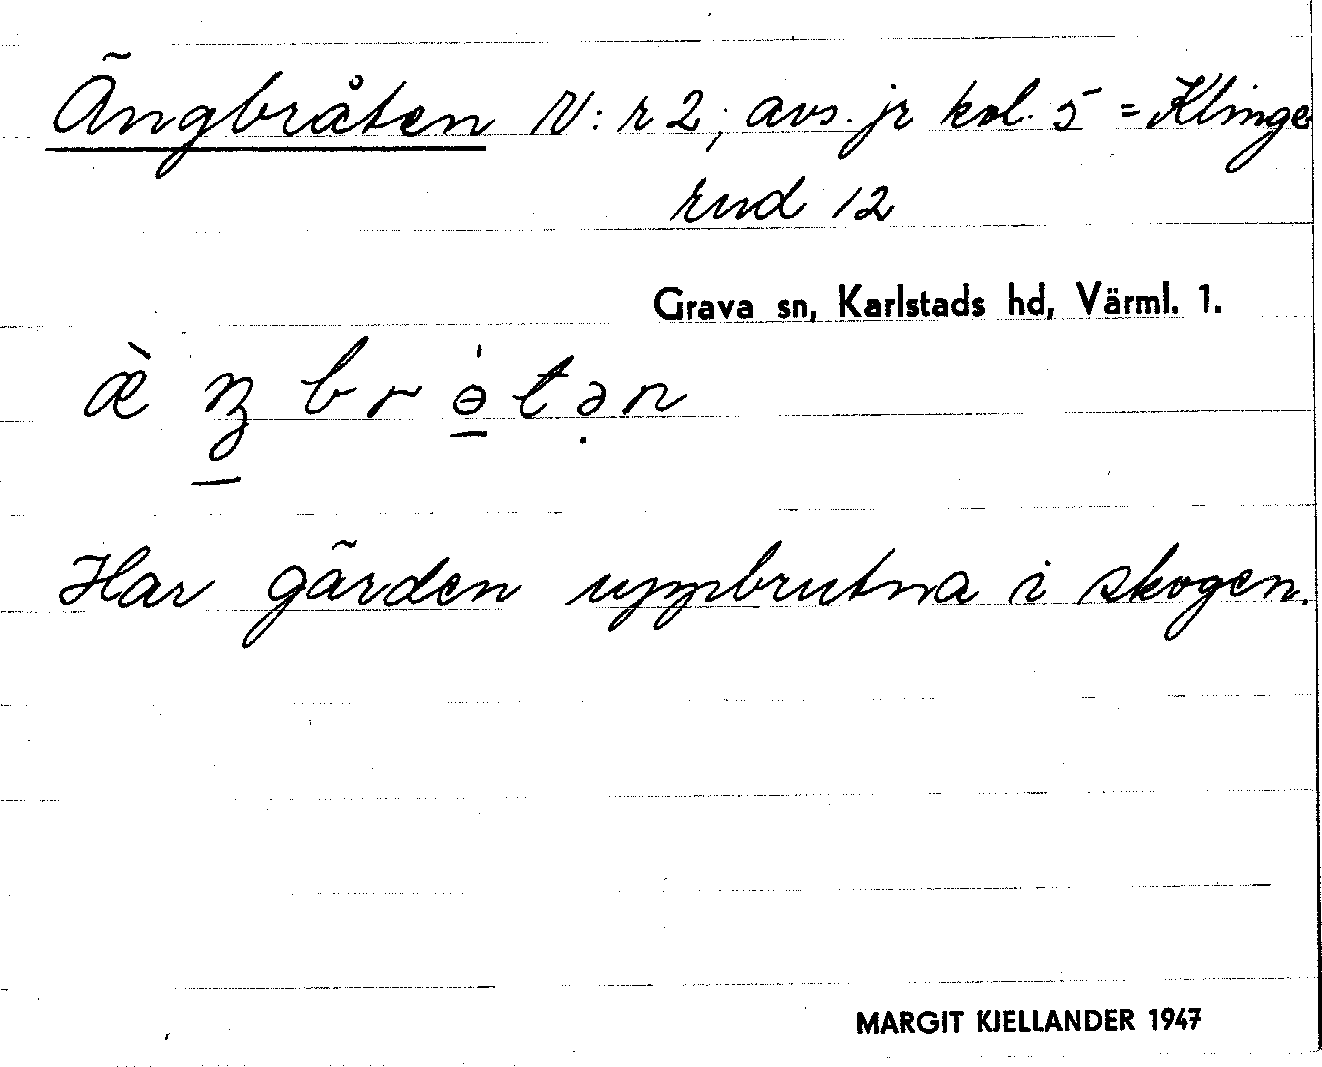 Ängbråten IV: r 2, avs. jr kol. 5 = Klinge
rud 12
Grava sn, Karlstads hd, Värml. 1.
æ̀ ŋ̱ b r ɵ̱́ t ə̣ n
Har gärden uppbrutna i skogen.
MARGIT KJELLANDER 1947